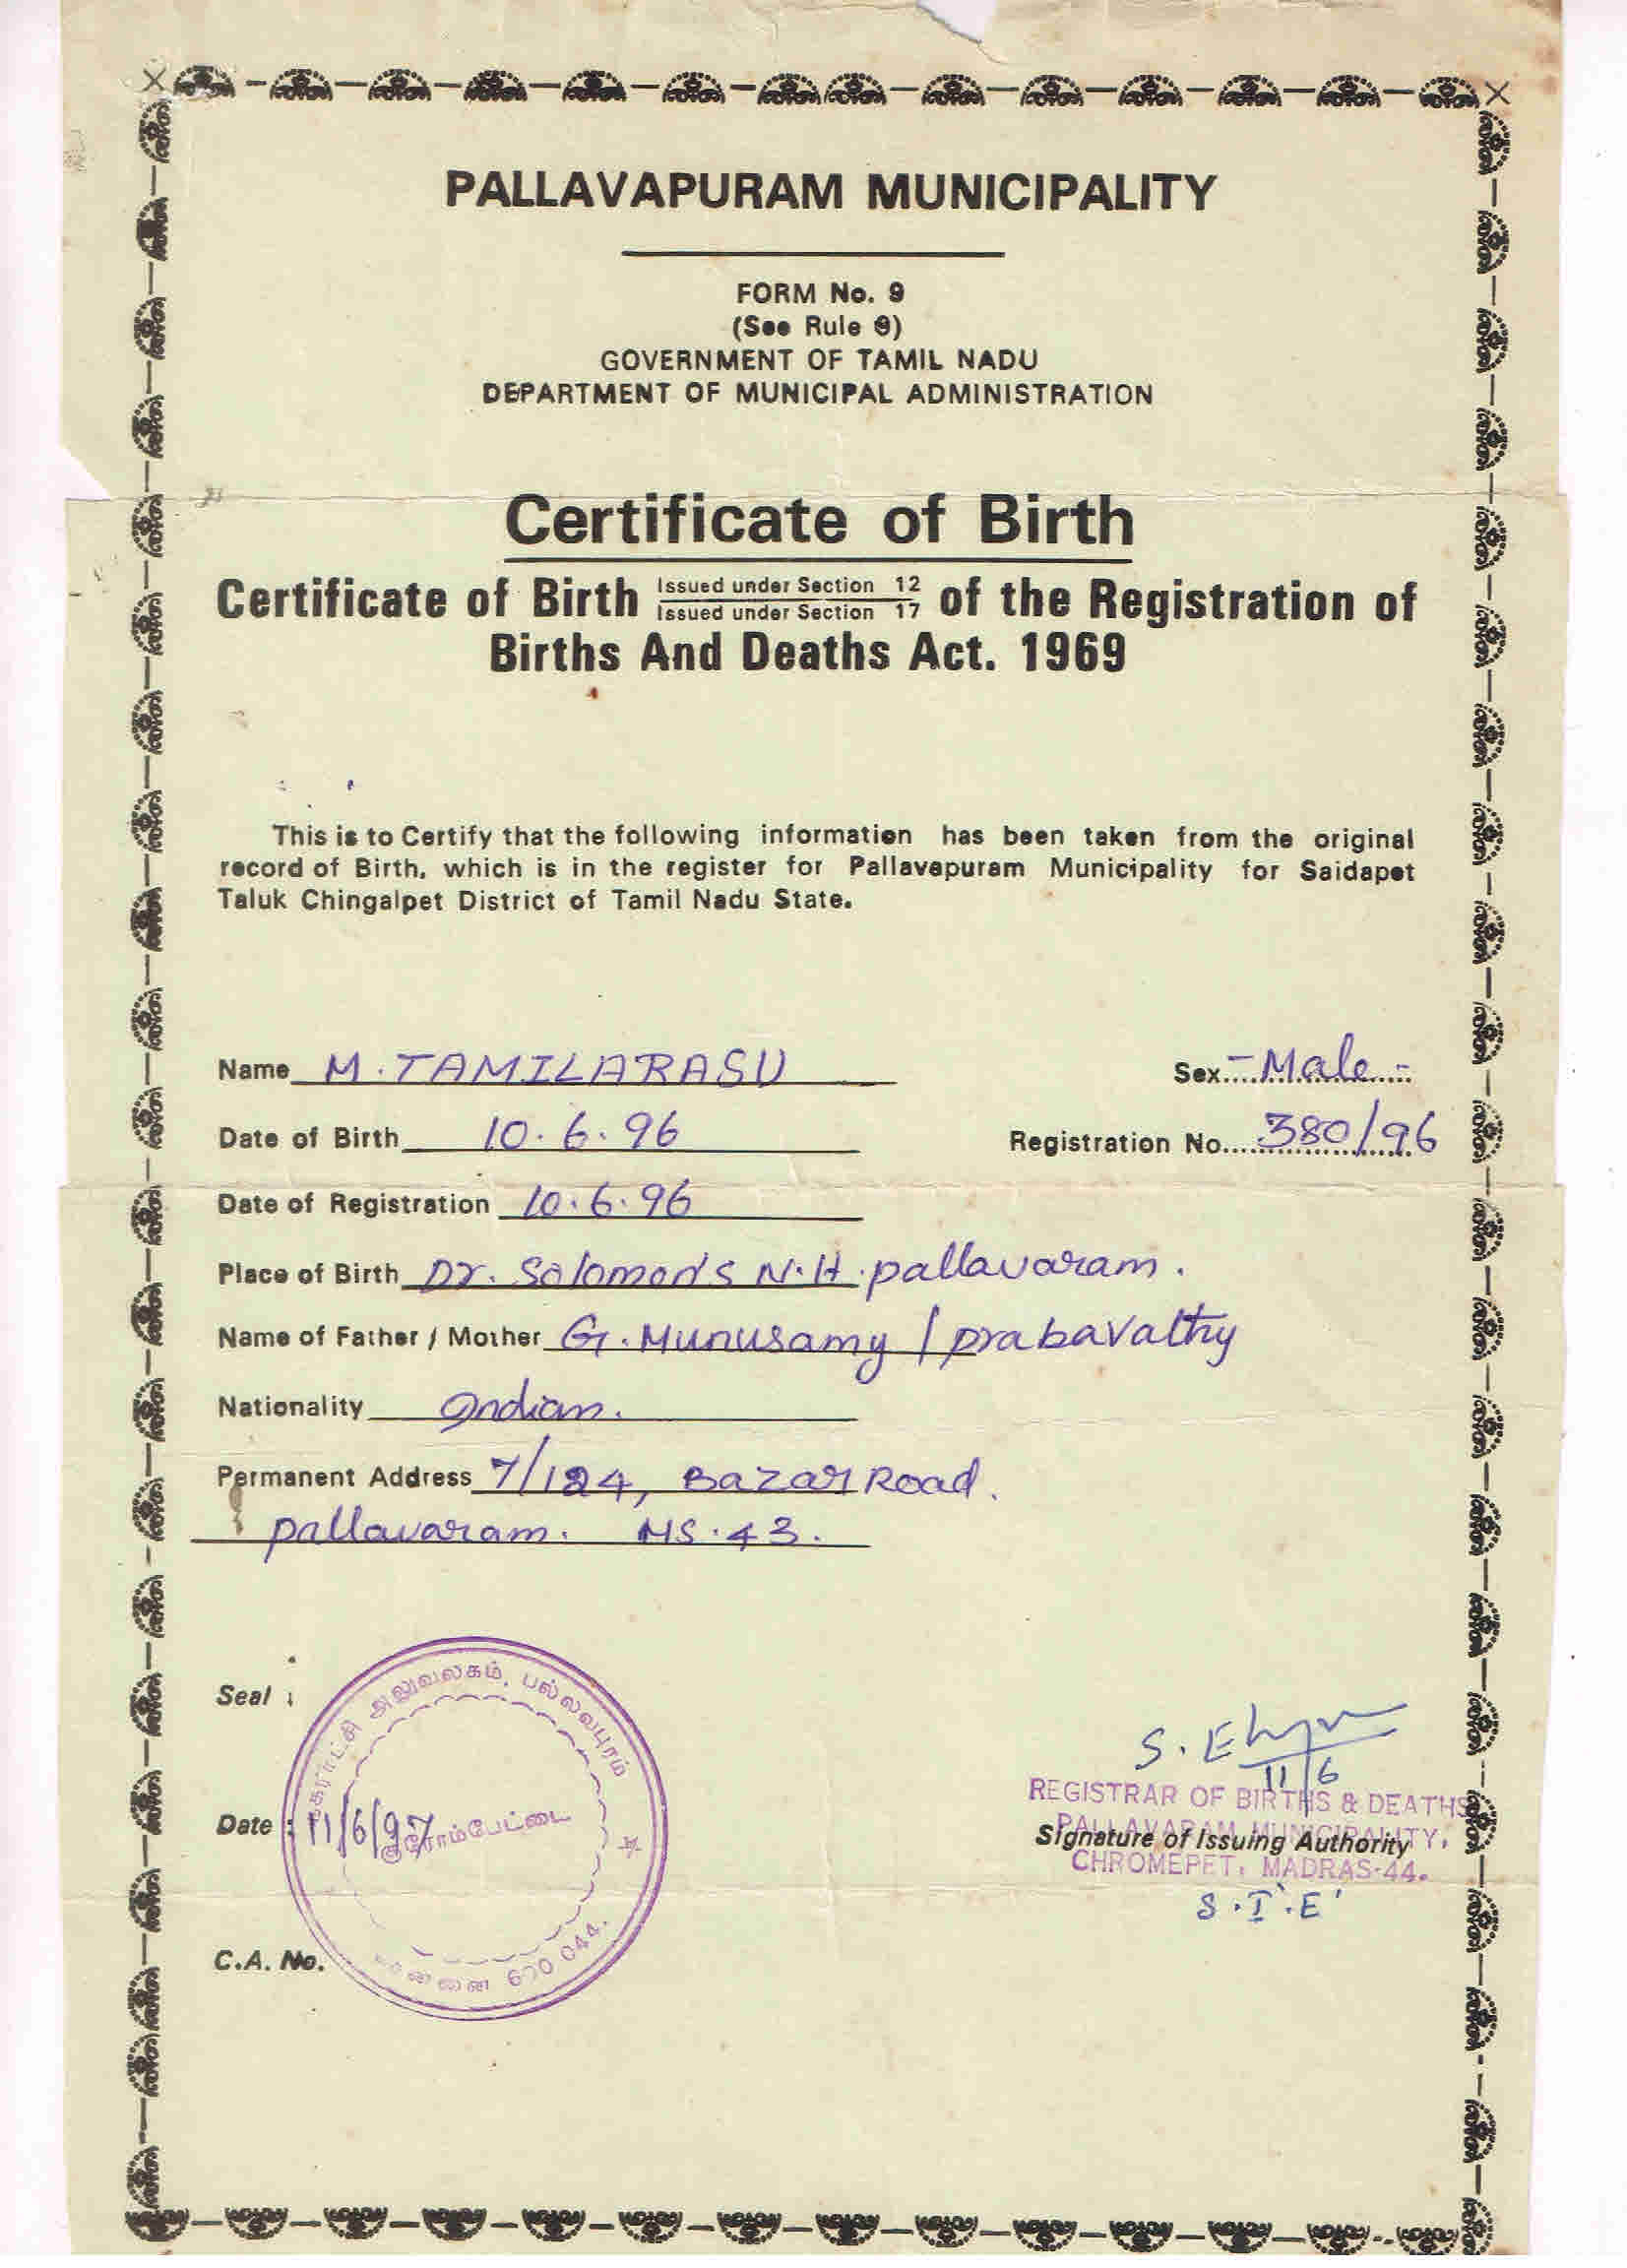 PALLAVAPURAM MUNICIPALITY
FORM No. 9
(See Rule 9)
GOVERNMENT OF TAMIL NADU
DEPARTMENT OF MUNICIPAL ADMINISTRATION
Certificate of Birth
Certificate of Birth Issued under Section 12 / Issued under Section 17 of the Registration of
Births And Deaths Act. 1969
This is to Certify that the following information has been taken from the original
record of Birth, which is in the register for Pallavapuram Municipality for Saidapet
Taluk Chingalpet District of Tamil Nadu State.
Name M. TAMILARASU Sex - Male -
Date of Birth 10.6.96 Registration No. 380/96
Date of Registration 10.6.96
Place of Birth Dr. Solomon's N.H. pallavaram.
Name of Father / Mother G. Munusamy / prabavathy
Nationality Indian.
Permanent Address 7/124, Bazar Road.
pallavaram. MS.43.
Seal :
நகராட்சி அலுவலகம், பல்லவபுரம்
குரோம்பேட்டை
சென்னை 600 044.
Date : 11/6/97
C.A. No.
11/6
REGISTRAR OF BIRTHS & DEATHS
PALLAVARAM MUNICIPALITY,
Signature of Issuing Authority
CHROMEPET, MADRAS-44.